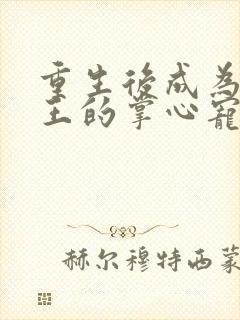 重生後成為
王的掌心寵
赫尔穆特西蒙